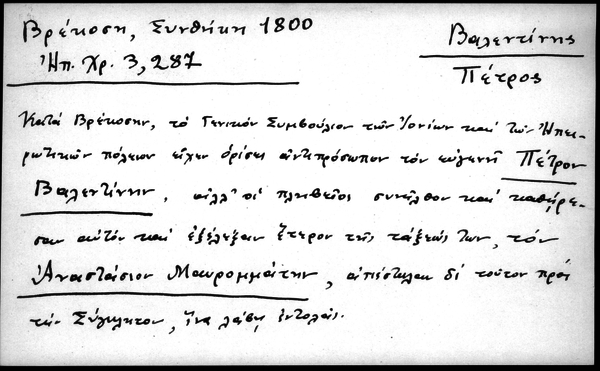 Βρέκοση, Συνθήκη 1800
Ἠπ. Χρ. 3, 287
Βαλεντίνης
Πέτρος
Κατά Βρέκοσην, τό Γενικόν Συμβούλιον τῶν Ἰονίων καί τῶν Ἠπει-
ρωτικῶν πόλεων εἶχεν ὁρίσει ἀντιπρόσωπον τόν εὐγενῆ Πέτρον
Βαλεντίνην, ἀλλ' οἱ πληβεῖοι συνῆλθον καί καθῄρε-
σαν αὐτόν καί ἐξέλεξαν ἕτερον τῆς τάξεώς των, τόν
Ἀναστάσιον Μαυρομμάτην, ἀπέστειλαν δέ τοῦτον πρός
τήν Σύγκλητον, ἵνα λάβῃ ἐντολάς.